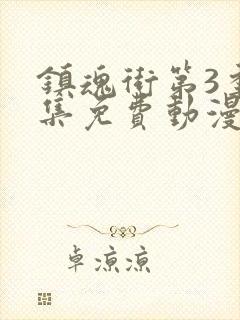 鎮魂街第3季
集免費動漫
卓涼涼